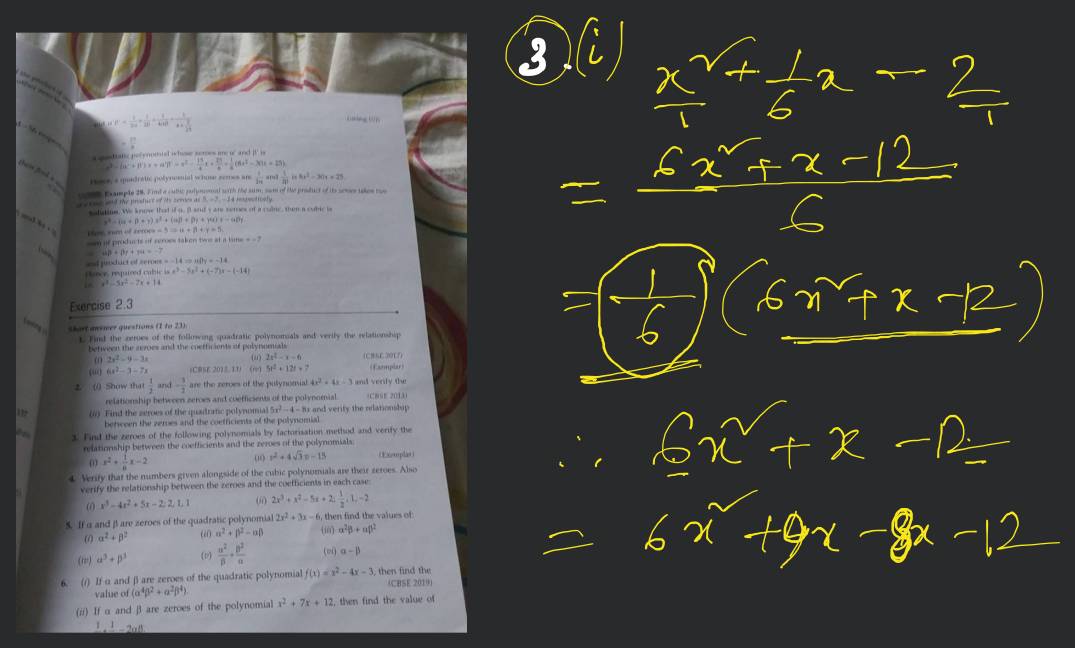 Hence, a quadratic polynomial whose zeroes are 1/2α and 1/2β is 8x² − 30x + 25.
Example 28. Find a cubic polynomial with the sum, sum of the product of its zeroes taken two
at a time, and the product of its zeroes as 5, −7, −14 respectively.
Solution. We know that if α, β and γ are zeroes of a cubic, then a cubic is
x³ − (α + β + γ) x² + (αβ + βγ + γα) x − αβγ.
Here, sum of zeroes = 5 ⇒ α + β + γ = 5,
sum of products of zeroes taken two at a time = −7
αβ + βγ + γα = −7
and product of zeroes = −14 ⇒ αβγ = −14.
Hence, required cubic is x³ − 5x² + (−7)x − (−14)
i.e. x³ − 5x² − 7x + 14.
Exercise 2.3
Short answer questions (1 to 23):
1. Find the zeroes of the following quadratic polynomials and verify the relationship
between the zeroes and the coefficients of polynomials:
(i) 2x² − 9 − 3x (ii) 2x² − x − 6 (CBSE 2017)
(iii) 6x² − 3 − 7x (CBSE 2012, 13) (iv) 5t² + 12t + 7 (Exemplar)
2. (i) Show that 1/2 and −3/2 are the zeroes of the polynomial 4x² + 4x − 3 and verify the
relationship between zeroes and coefficients of the polynomial.
(ii) Find the zeroes of the quadratic polynomial 5x² − 4 − 8x and verify the relationship
between the zeroes and the coefficients of the polynomial.
3. Find the zeroes of the following polynomials by factorisation method and verify the
relationship between the coefficients and the zeroes of the polynomials:
(i) x² + 1/6 x − 2 (ii) v² + 4√3 v − 15 (Exemplar)
4. Verify that the numbers given alongside of the cubic polynomials are their zeroes. Also
verify the relationship between the zeroes and the coefficients in each case:
(i) x³ − 4x² + 5x − 2; 2, 1, 1 (ii) 2x³ + x² − 5x + 2; 1/2, 1, −2
5. If α and β are zeroes of the quadratic polynomial 2x² + 3x − 6, then find the values of:
(i) α² + β² (ii) α² + β² − αβ (iii) α²β + αβ²
(iv) α³ + β³ (v) α²/β + β²/α (vi) α − β
6. (i) If α and β are zeroes of the quadratic polynomial f(x) = x² − 4x − 3, then find the
value of (α⁴β² + α²β⁴). (CBSE 2019)
(ii) If α and β are zeroes of the polynomial x² + 7x + 12, then find the value of
1/α + 1/β − 2αβ.
3.(i)
x²/1 + 1/6 x − 2/1
= (6x² + x − 12)/6
= 1/6 (6x² + x − 12)
∴ 6x² + x − 12
= 6x² + 9x − 8x − 12